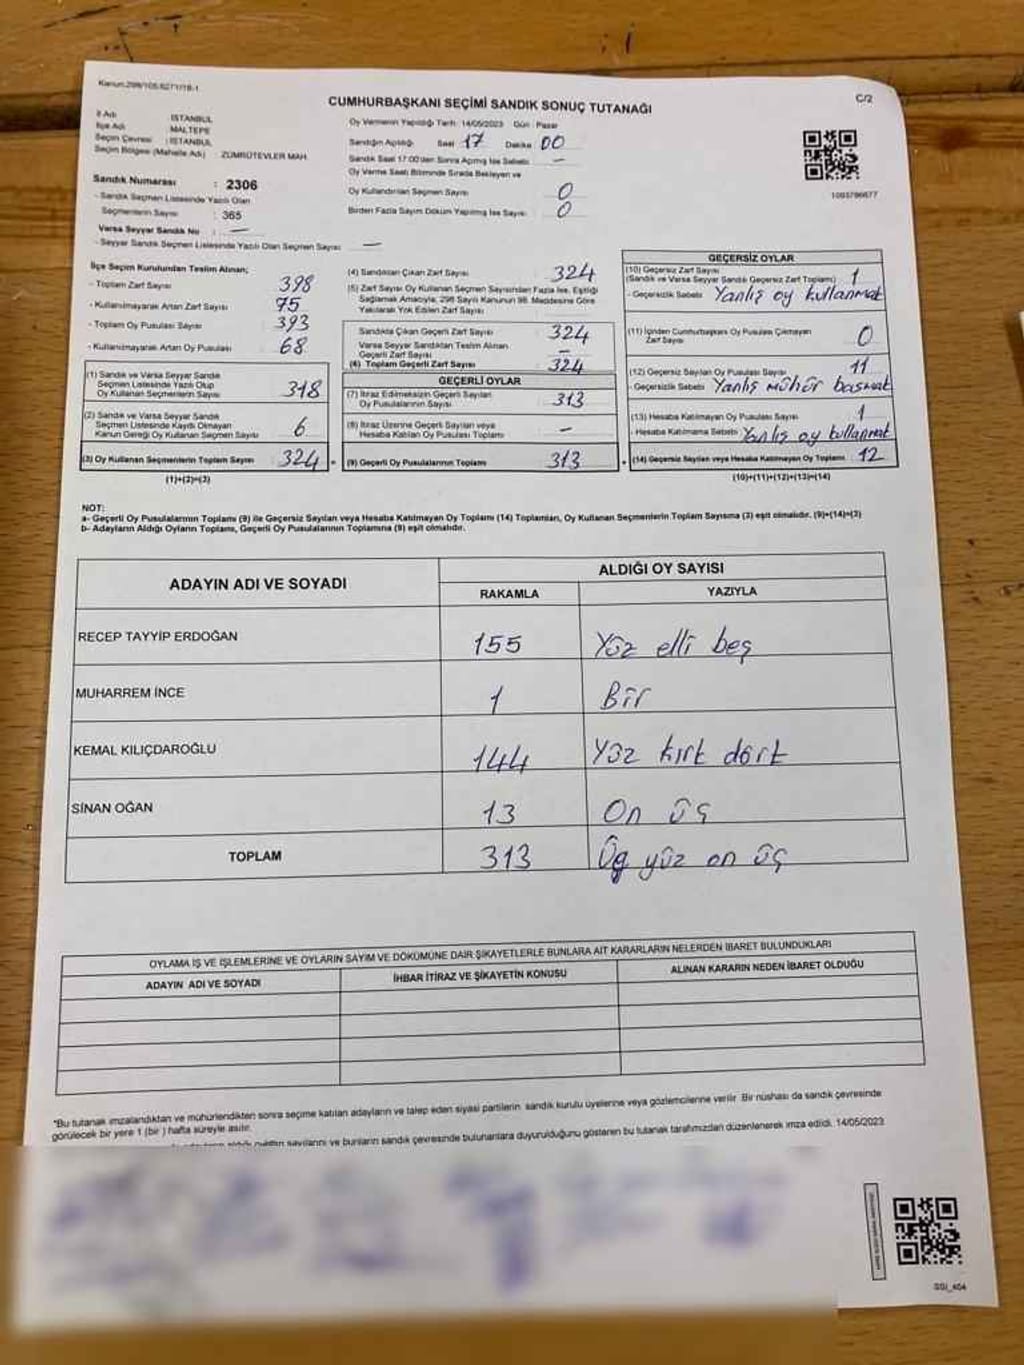 Kanun:298/105:6271/18-1
C/2
CUMHURBAŞKANI SEÇİMİ SANDIK SONUÇ TUTANAĞI
İl Adı : İSTANBUL
İlçe Adı : MALTEPE
Seçim Çevresi : İSTANBUL
Seçim Bölgesi (Mahalle Adı) : ZÜMRÜTEVLER MAH.
Sandık Numarası : 2306
- Sandık Seçmen Listesinde Yazılı Olan
Seçmenlerin Sayısı : 365
Varsa Seyyar Sandık No : —
- Seyyar Sandık Seçmen Listesinde Yazılı Olan Seçmen Sayısı —
Oy Vermenin Yapıldığı Tarih: 14/05/2023 Gün : Pazar
Sandığın Açıldığı Saat 17 Dakika 00
Sandık Saat 17:00'den Sonra Açılmış İse Sebebi —
Oy Verme Saati Bitiminde Sırada Bekleyen ve
Oy Kullandırılan Seçmen Sayısı 0
Birden Fazla Sayım Döküm Yapılmış İse Sayısı 0
1093786677
İlçe Seçim Kurulundan Teslim Alınan;
- Toplam Zarf Sayısı 398
- Kullanılmayarak Artan Zarf Sayısı 75
- Toplam Oy Pusulası Sayısı 393
- Kullanılmayarak Artan Oy Pusulası 68
(1) Sandık ve Varsa Seyyar Sandık
Seçmen Listesinde Yazılı Olup
Oy Kullanan Seçmenlerin Sayısı 318
(2) Sandık ve Varsa Seyyar Sandık
Seçmen Listesinde Kayıtlı Olmayan
Kanun Gereği Oy Kullanan Seçmen Sayısı 6
(3) Oy Kullanan Seçmenlerin Toplam Sayısı 324
(1)+(2)=(3)
(4) Sandıktan Çıkan Zarf Sayısı 324
(5) Zarf Sayısı Oy Kullanan Seçmen Sayısından Fazla İse, Eşitliği
Sağlamak Amacıyla, 298 Sayılı Kanunun 98. Maddesine Göre
Yakılarak Yok Edilen Zarf Sayısı
Sandıkta Çıkan Geçerli Zarf Sayısı 324
Varsa Seyyar Sandıktan Teslim Alınan
Geçerli Zarf Sayısı —
(6) Toplam Geçerli Zarf Sayısı 324
GEÇERLİ OYLAR
(7) İtiraz Edilmeksizin Geçerli Sayılan
Oy Pusulalarının Sayısı 313
(8) İtiraz Üzerine Geçerli Sayılan veya
Hesaba Katılan Oy Pusulası Toplamı —
(9) Geçerli Oy Pusulalarının Toplamı 313
GEÇERSİZ OYLAR
(10) Geçersiz Zarf Sayısı
(Sandık ve Varsa Seyyar Sandık Geçersiz Zarf Toplamı) 1
- Geçersizlik Sebebi Yanlış oy kullanmak
(11) İçinden Cumhurbaşkanı Oy Pusulası Çıkmayan
Zarf Sayısı 0
(12) Geçersiz Sayılan Oy Pusulası Sayısı 11
- Geçersizlik Sebebi Yanlış mühür basmak
(13) Hesaba Katılmayan Oy Pusulası Sayısı 1
- Hesaba Katılmama Sebebi Yanlış oy kullanmak
(14) Geçersiz Sayılan veya Hesaba Katılmayan Oy Toplamı 12
(10)+(11)+(12)+(13)=(14)
NOT:
a- Geçerli Oy Pusulalarının Toplamı (9) ile Geçersiz Sayılan veya Hesaba Katılmayan Oy Toplamı (14) Toplamları, Oy Kullanan Seçmenlerin Toplam Sayısına (3) eşit olmalıdır. (9)+(14)=(3)
b- Adayların Aldığı Oyların Toplamı, Geçerli Oy Pusulalarının Toplamına (9) eşit olmalıdır.
ADAYIN ADI VE SOYADI
ALDIĞI OY SAYISI
RAKAMLA YAZIYLA
RECEP TAYYİP ERDOĞAN 155 Yüz elli beş
MUHARREM İNCE 1 Bir
KEMAL KILIÇDAROĞLU 144 Yüz kırk dört
SİNAN OĞAN 13 On üç
TOPLAM 313 Üç yüz on üç
OYLAMA İŞ VE İŞLEMLERİNE VE OYLARIN SAYIM VE DÖKÜMÜNE DAİR ŞİKAYETLERLE BUNLARA AİT KARARLARIN NELERDEN İBARET BULUNDUKLARI
ADAYIN ADI VE SOYADI İHBAR İTİRAZ VE ŞİKAYETİN KONUSU ALINAN KARARIN NEDEN İBARET OLDUĞU
"Bu tutanak imzalandıktan ve mühürlendikten sonra seçime katılan adayların ve talep eden siyasi partilerin sandık kurulu üyelerine veya gözlemcilerine verilir. Bir nüshası da sandık çevresinde
görülecek bir yere 1 (bir) hafta süreyle asılır.
aldığı oyların sayılarını ve bunların sandık çevresinde bulunanlara duyurulduğunu gösteren bu tutanak tarafımızdan düzenlenerek imza edildi. 14/05/2023
SSI_404